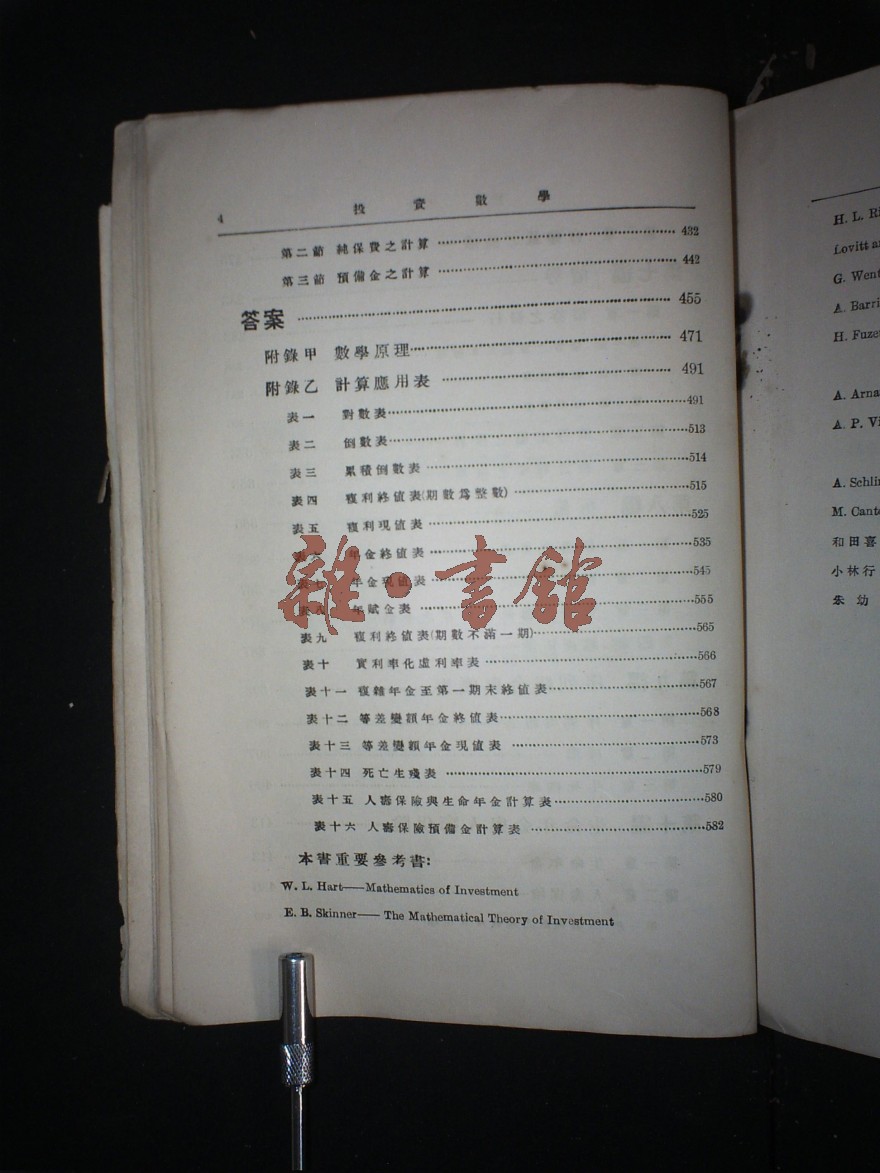 4 投資數學
第二節 純保費之計算 432
第三節 預備金之計算 442
答案 455
附錄甲 數學原理 471
附錄乙 計算應用表 491
表一 對數表 491
表二 倒數表 513
表三 累積倒數表 514
表四 複利終值表(期數爲整數) 515
表五 複利現值表 525
表六 年金終值表 535
表七 年金現值表 545
表八 年賦金表 555
表九 複利終值表(期數不滿一期) 565
表十 實利率化虛利率表 566
表十一 複雜年金至第一期末終值表 567
表十二 等差變額年金終值表 568
表十三 等差變額年金現值表 573
表十四 死亡生殘表 579
表十五 人壽保險與生命年金計算表 580
表十六 人壽保險預備金計算表 582
本書重要參考書:
W. L. Hart——Mathematics of Investment
E. B. Skinner—— The Mathematical Theory of Investment
雜·書館
H. L.
Lovitt
G.
A.
H.
A.
A. P.
A.
M.
和田喜
小林行
朱幼